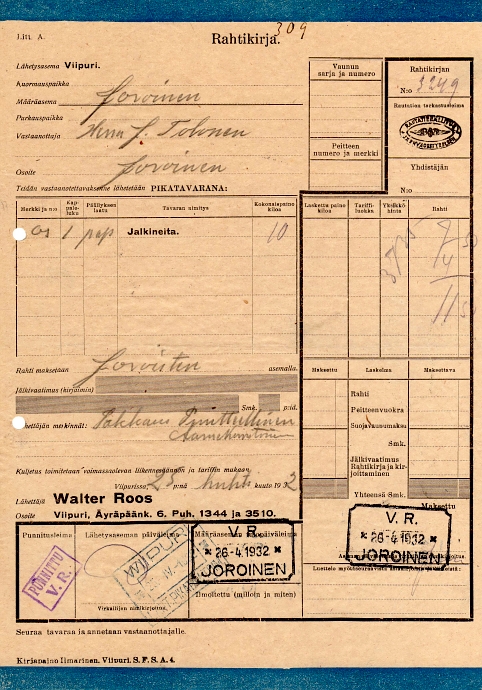 Litt. A.
Rahtikirja.
309
Lähetysasema Viipuri.
Kuormauspaikka
Määräasema Joroinen
Purkauspaikka
Vastaanottaja Herra J. Tolonen
Osoite Joroinen
Teidän vastaanotettavaksenne lähetetään PIKATAVARANA:
Vaunun sarja ja numero
Peitteen numero ja merkki
Rahtikirjan
N:o 3249
Rautatien tarkastusleima
Yhdistäjän
N:o
Merkki ja n:o
Kap-paleluku
Päällyksen laatu
Tavaran nimitys
Kokonaispaino kiloa
Laskettu paino kiloa
Tariffiluokka
Yksikköhinta
Rahti
Os 1 pap Jalkineita. 10
Rahti maksetaan Joroisten asemalla.
Jälkivaatimus (kirjaimin)
Smk. p:iä.
Lähettäjän merkinnät: Pakkaus
Maksettu
Laskelma
Maksettava
Rahti
Peitteenvuokra
Suojavaunumaksu
Smk.
Jälkivaatimus
Rahtikirja ja kirjoittaminen
Yhteensä Smk.
Maksettu
Kuljetus toimitetaan voimassaolevan liikennesäännön ja tariffin mukaan.
Viipurissa, 25 p:nä huhti kuuta 1932
Lähettäjä Walter Roos
Osoite Viipuri, Äyräpäänk. 6. Puh. 1344 ja 3510.
Punnitusleima
Lähetysaseman päiväleima
Määräaseman tulopäiväleima
PUNNITTU
V. R.
V. R.
* 26-4.1932 *
JOROINEN
V. R.
* 26-4.1932 *
JOROINEN
Virkailijan nimikirjoitus
Ilmoitettu (milloin ja miten)
Seuraa tavaraa ja annetaan vastaanottajalle.
Kirjapaino Ilmarinen, Viipuri. S. F. S. A. 4.